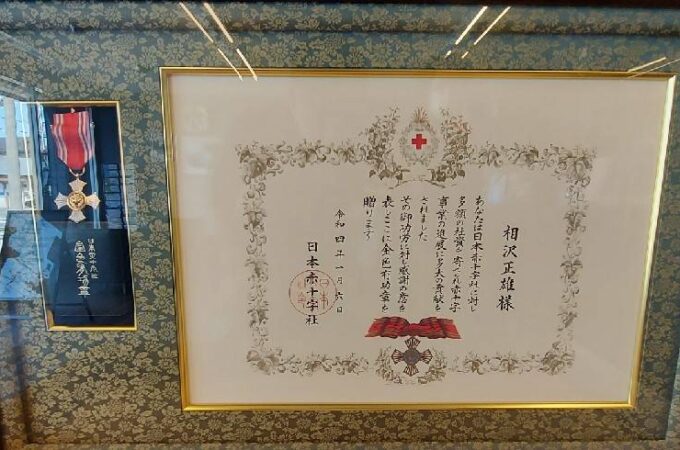 相沢正雄様
あなたは日本赤十字社に対し
多額の社資を寄せられ赤十字
事業の進展に多大の貢献を
されました
その御功労に対し感謝の意を
表しここに金色有功章を
贈ります
令和四年一月六日
日本赤十字社
日本赤十字社
金色有功章